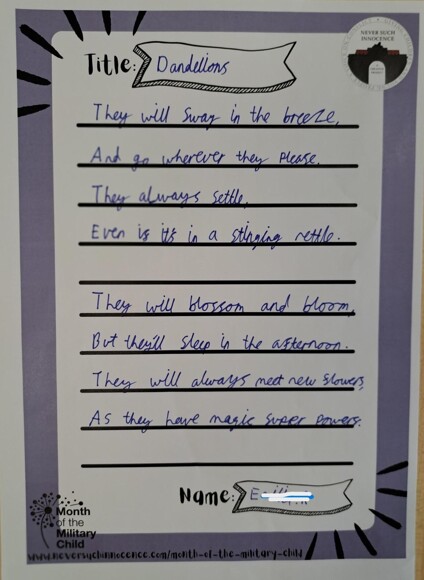 NEVER SUCH
INNOCENCE
Title: Dandelions
They will sway in the breeze,
And go wherever they please.
They always settle,
Even if it's in a stinging nettle.
They will blossom and bloom,
But they'll sleep in the afternoon.
They will always meet new flowers,
As they have magic super powers.
Name:
Month
of the
Military
Child
www.neversuchinnocence.com/month-of-the-military-child